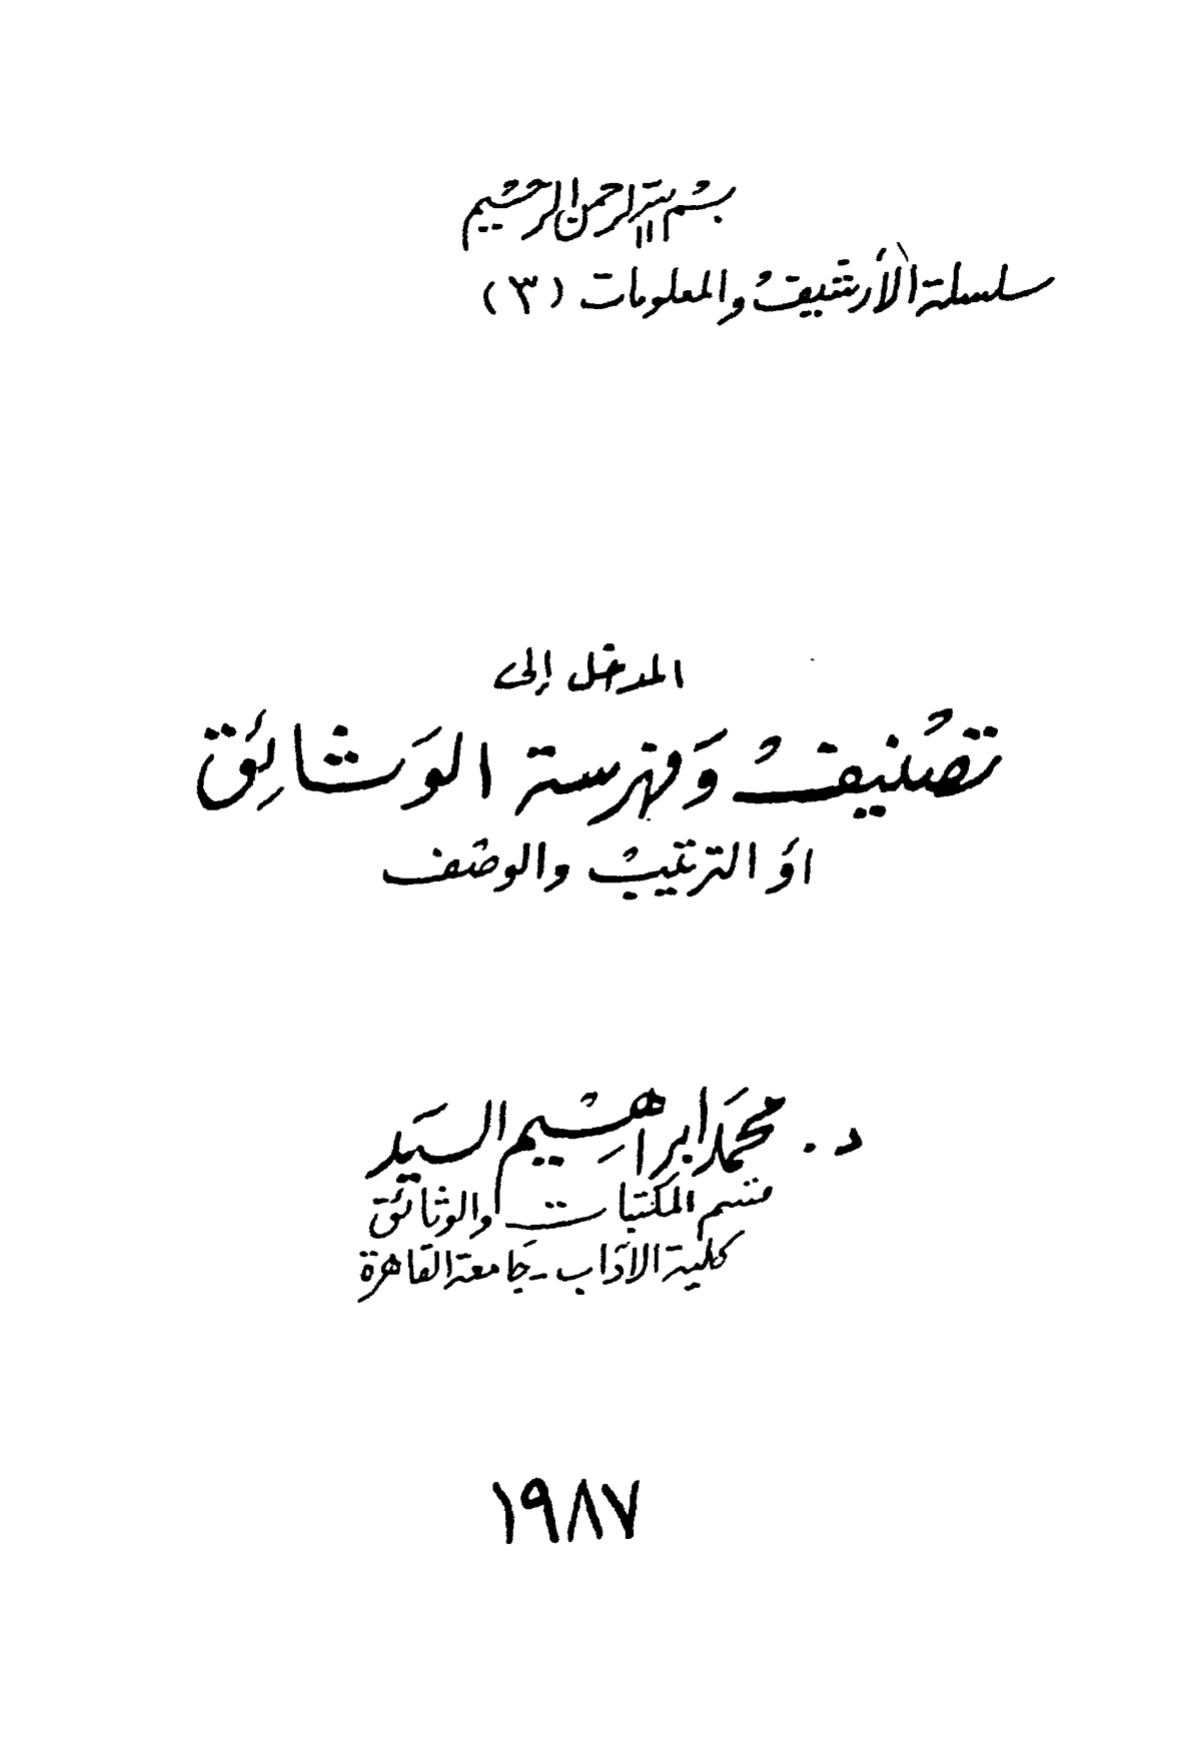 بسم الله الرحمن الرحيم
سلسلة الأرشيف والمعلومات (٣)
المدخل إلى
تصنيف وفهرسة الوثائق
أو الترتيب والوصف
د. محمد ابراهيم السيد
قسم المكتبات والوثائق
كلية الآداب - جامعة القاهرة
١٩٨٧